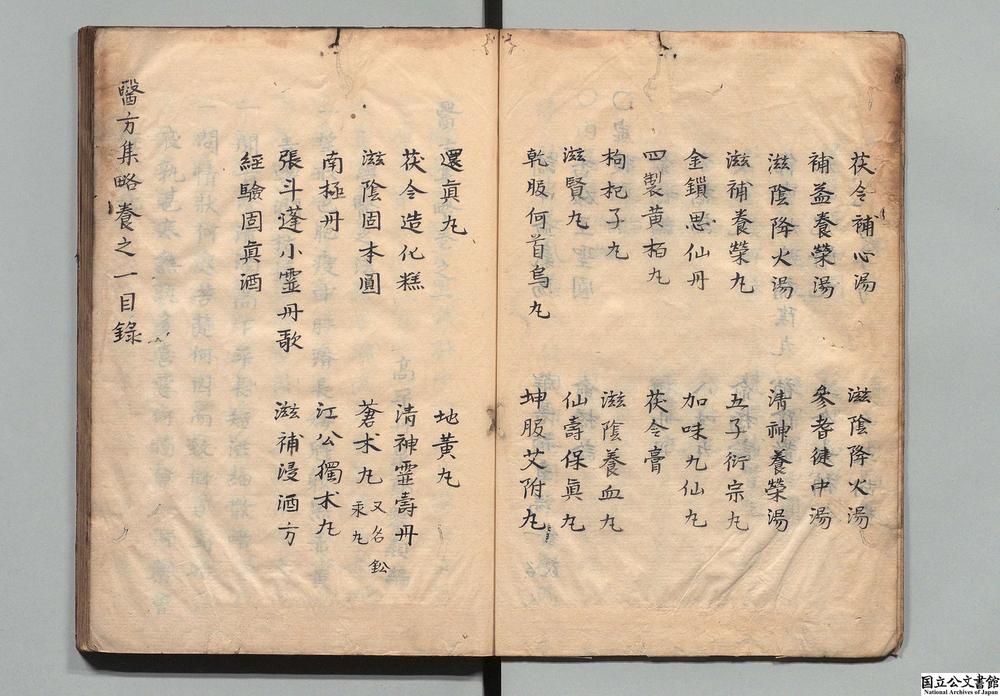 茯令補心湯 滋陰降火湯
補益養榮湯 參耆健中湯
滋陰降火湯 清神養榮湯
滋補養榮丸 五子衍宗丸
金鎖思仙丹 加味九仙丸
四製黄栢丸 茯令膏
枸杞子丸 滋陰養血丸
滋賢丸 仙壽保眞丸
乾服何首烏丸 坤服艾附丸
還眞丸 地黄丸
茯令造化糕 清神靈壽丹
滋陰固本圓 蒼术丸 又名 乘丸
南極丹 江公獨术丸
張斗蓬小靈丹歌 滋補浸酒方
經驗固眞酒
醫方集略養之一目錄
国立公文書館
National Archives of Japan